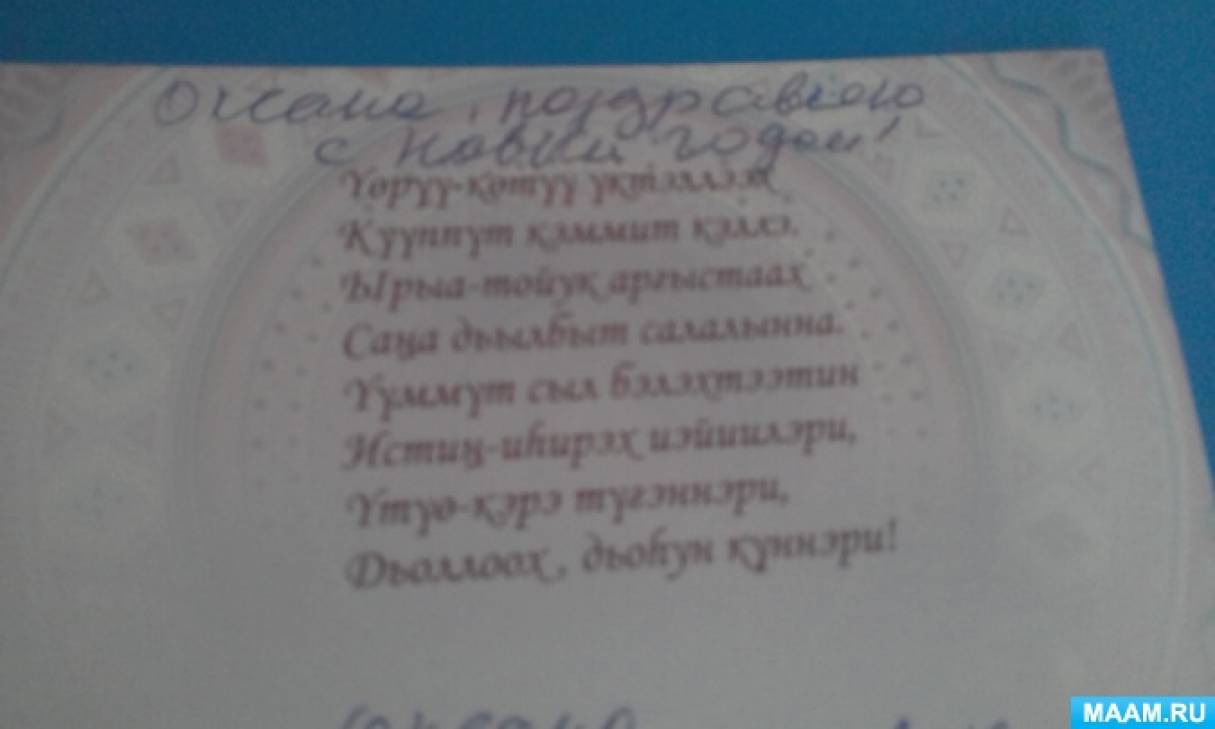 Оксана, поздравляю
с Новым годом!
Үөрүү-көтүү үктэллээх
Күүппүт кэммит кэллэ.
Ырыа-тойук аргыстаах
Саҥа дьылбыт салалынна.
Үүммүт сыл бэлэхтээтин
Истиҥ-иһирэх иэйиилэри,
Үтүө-кэрэ түгэннэри,
Дьоллоох, дьоһун күннэри!
MAAM.RU